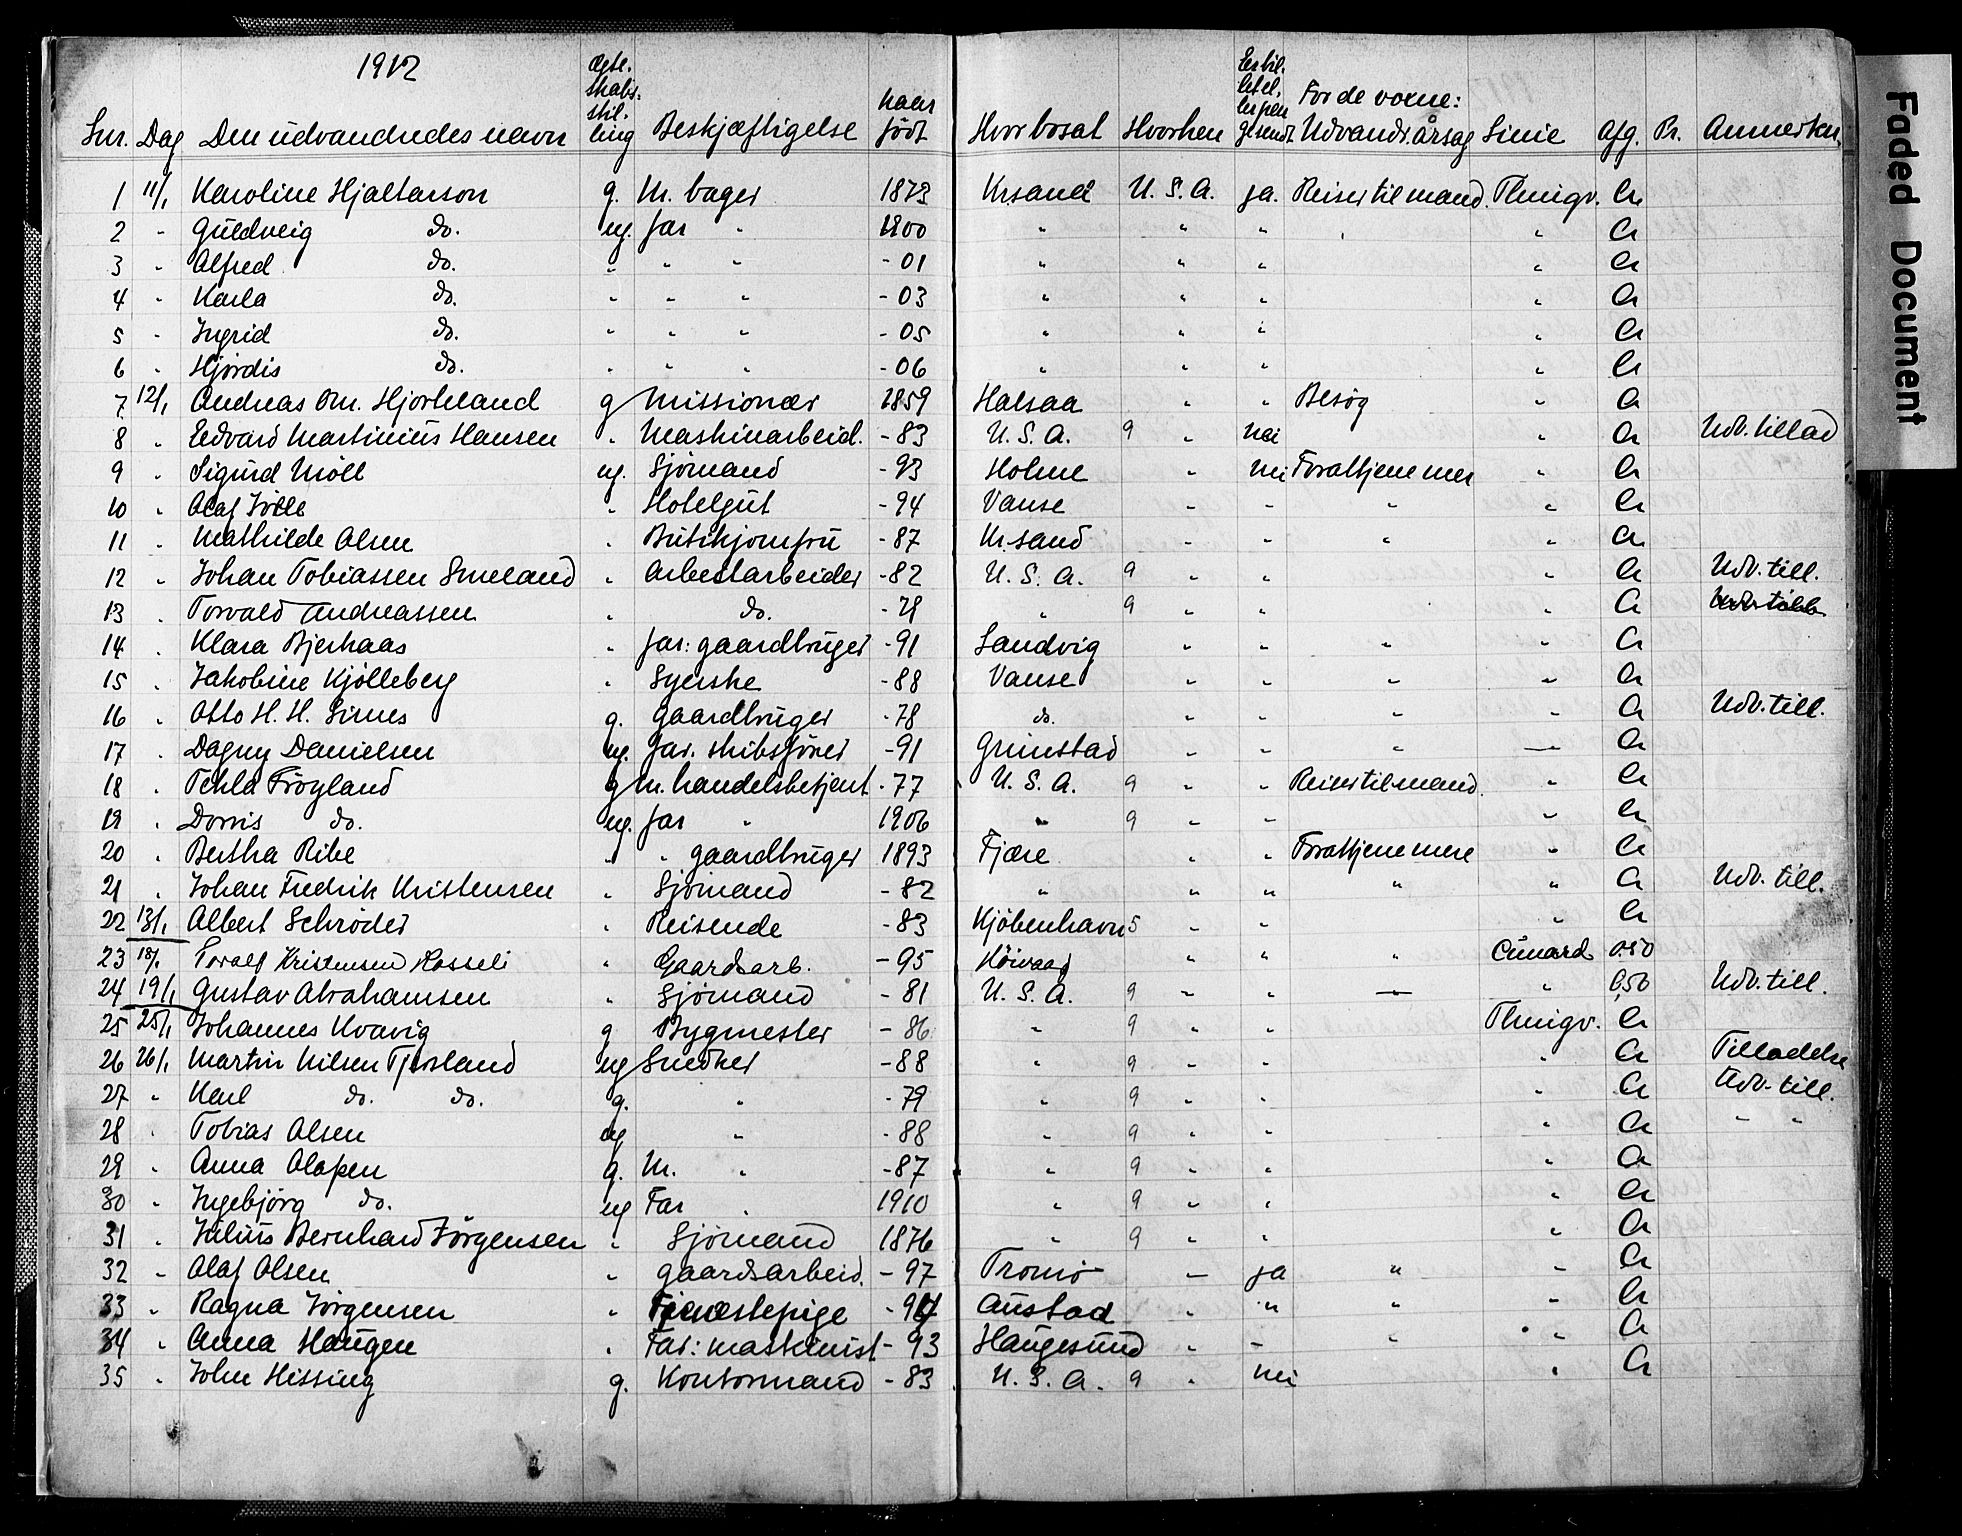 1912
Lnr. Dag Den udvandredes navn Ægte.skabs:stil.ling Beskjæftigelse naar født Hvor bosat Hvorhen Er bil.let el. lespen gesendt For de voxne: Udvandr. årsag Linie Afg. Pr. Anmerkn.
1 11/1 Karoline Hjaltarson g. M. bager 1873 Krsand U. S. A. ja. Reiser til mand. Thingv. Cr
2 " Guldveig do. ug. far " 1900 " " " " Cr
3 " Alfred do. " " " - 01 " " " " Cr
4 " Karla do. " " " - 03 " " " " Cr
5 " Ingrid do. " " " - 05 " " " " Cr
6 " Hjørdis do. " " " - 06 " " " " Cr
7 12/1 Andreas Om. Hjortland g Missionær 1859 Halsaa " " Besøg " Cr
8 " Edvard Martinius Hansen " Maskinarbeid. - 83 U. S. A. 9 " Nei " Cr Udv. tillad
9 " Sigurd Moll ug. Sjømand - 93 Holme " nei For at tjene mer " Cr
10 " Olaf " Hotelgut - 94 Vanse " " " " Cr
11 " Mathilde Olsen " Butikjomfru - 87 Kr.sand " " " " Cr
12 " Johan Tobiassen Smeland " Arbeidarbeider - 82 U. S. A. 9 " " " Cr Udv. till.
13 " Torvald Andreassen " do. - 79 " 9 " " " Cr Udv. till
14 " Klara Bjerkaas " far: gaardbruger - 91 Sandvig " " " " Cr
15 " Jakobine Kjølleberg " Syerske - 88 Vanse " " " " Cr
16 " Otto H. H. Sirnes g. Gaardbruger - 78 do. " " " " Cr Udv. till.
17 " Dagny Danielsen ug. far. skibsfører - 91 Grimstad " " " " Cr
18 " Tekla Frøyland g M. handelsbetjent - 77 U. S. A. 9 " " Reiser til mand. " Cr
19 " Dorris do. ug. far " 1906 " 9 " " " Cr
20 " Bertha Ribe " " gaardbruger 1893 Fjære " " For at tjene mere " Cr
21 " Johan Fredrik Kristensen " Sjømand - 82 " " " " " Cr Udv. till.
22 13/1 Albert Schrøder " Reisende - 83 Kjøbenhavn 5 " " " Cr
23 18/1 Toralf Kristensen Kosseli " Gaardsarb. - 95 Høivaag " " " Cunard 0.50
24 19/1 Gustav Abrahamsen " Sjømand - 81 U. S. A. 9 " " " " 0,50 Udv. till.
25 25/1 Johannes Kvavig g Bygmester - 86 " 9 " " Thingv. Cr
26 26/1 Martin Nilsen Tjersland ug Snedker - 88 " 9 " " " Cr Tilladelse
27 " Karl do. do. g. " - 79 " 9 " " " Cr Udv. till.
28 " Tobias Olsen ug " - 88 " 9 " " " Cr " "
29 " Anna Olafsen g. M. " - 87 " 9 " " " Cr
30 " Ingebjørg do. ug Far " 1910 " 9 " " " Cr
31 " Julius Bernhard Jørgensen " Sjømand 1876 " 9 " " " Cr
32 " Olaf Olsen " gaardsarbeid. - 97 Tromø " ja " " Cr
33 " Ragna Jørgensen " Tjenestepige - 94 Austad " " " " Cr
34 " Anna Haugen " Far: maskinist - 93 Haugesund " " " " Cr
35 " John Hissing g. Kontormand - 83 U. S. A. 9 " nei " Cr
Faded Document